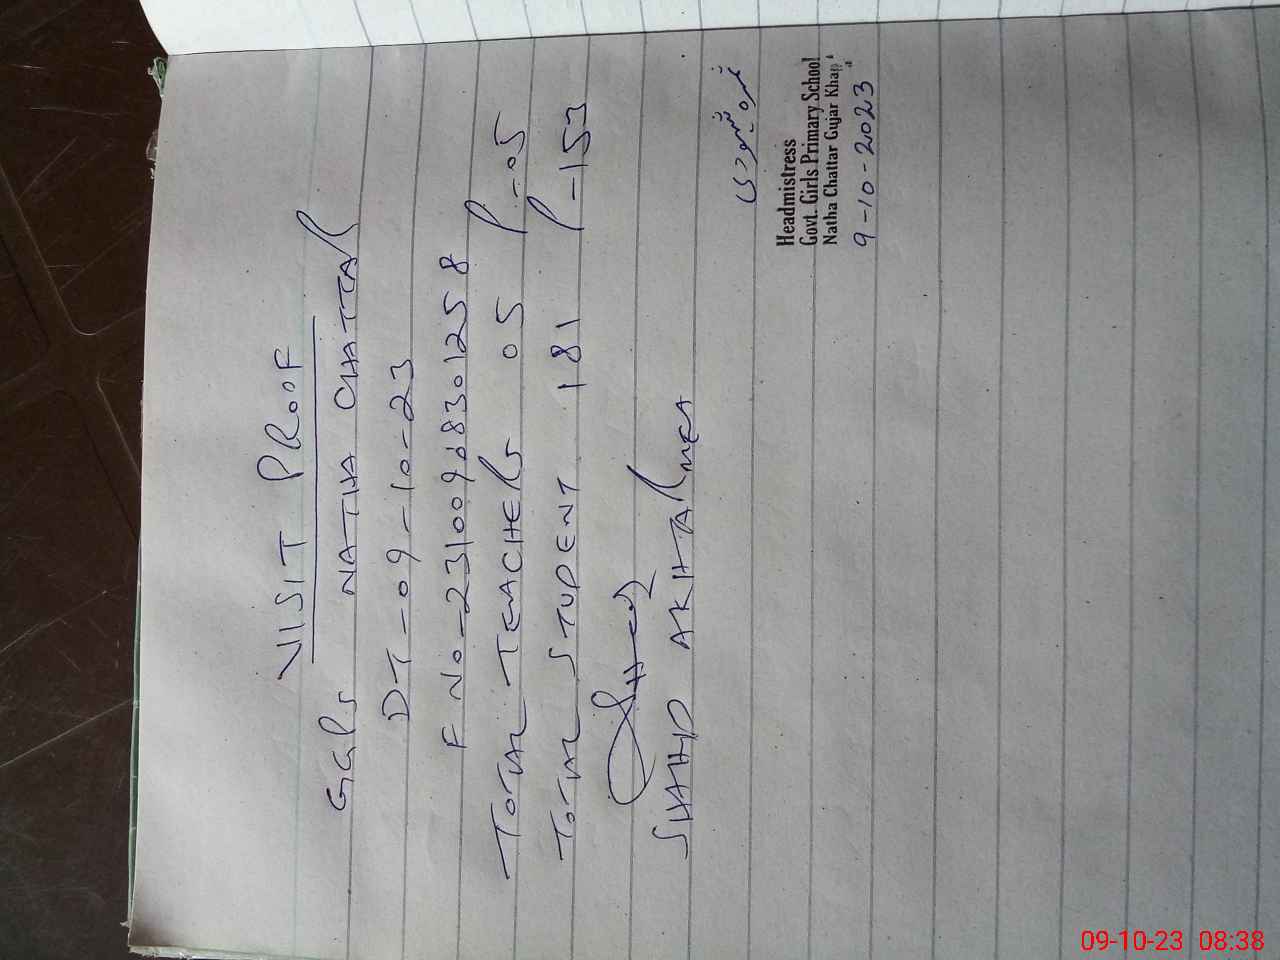 VISIT PROOF
GGPS NATHA CHATTAR
DT-09-10-23
F No-2310098301258
TOTAL TEACHERS 05 P-05
TOTAL STUDENT 181 P-153
SHAHID AKHTAR MEA
Headmistress
Govt. Girls Primary School
Natha Chattar Gujar Khan
9-10-2023
09-10-23 08:38